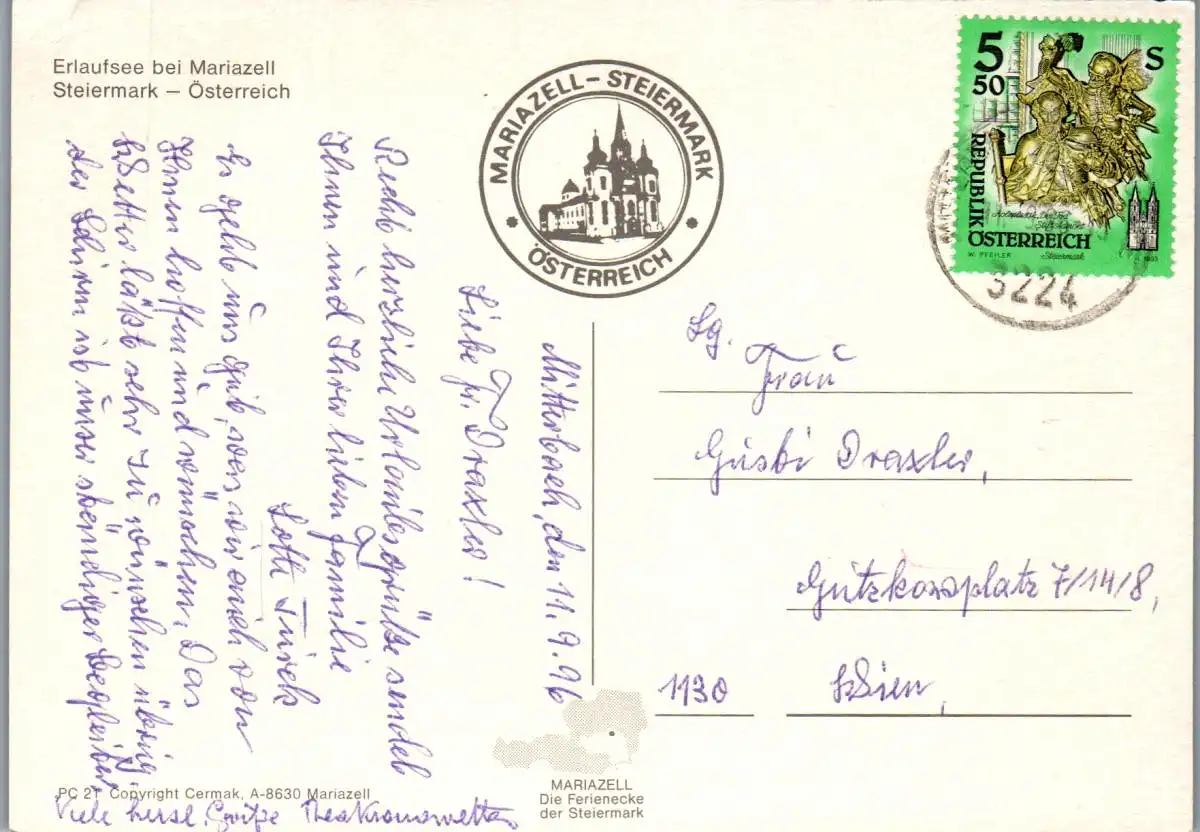 Erlaufsee bei Mariazell
Steiermark – Österreich
MARIAZELL – STEIERMARK
* ÖSTERREICH *
5 S
50
REPUBLIK
ÖSTERREICH
W. PFEILER
Steiermark
1993
3224
Mitterbach, den 11.9.96
Liebe Fr. Draxler!
Recht herzliche Urlaubsgrüße sendet
Ihnen und Ihrer lieben Familie
Lotte
Es geht uns gut, was wir auch von
Ihnen hoffen und wünschen. Das
Wetter läßt sehr zu wünschen übrig,
der Schirm ist unser ständiger Begleiter.
Viele herzl. Grüße Thea
Sg. Frau
Gusti Draxler,
Gutzkowplatz 7/14/8,
1130 Wien,
PC 21 Copyright Cermak, A-8630 Mariazell
MARIAZELL
Die Ferienecke
der Steiermark